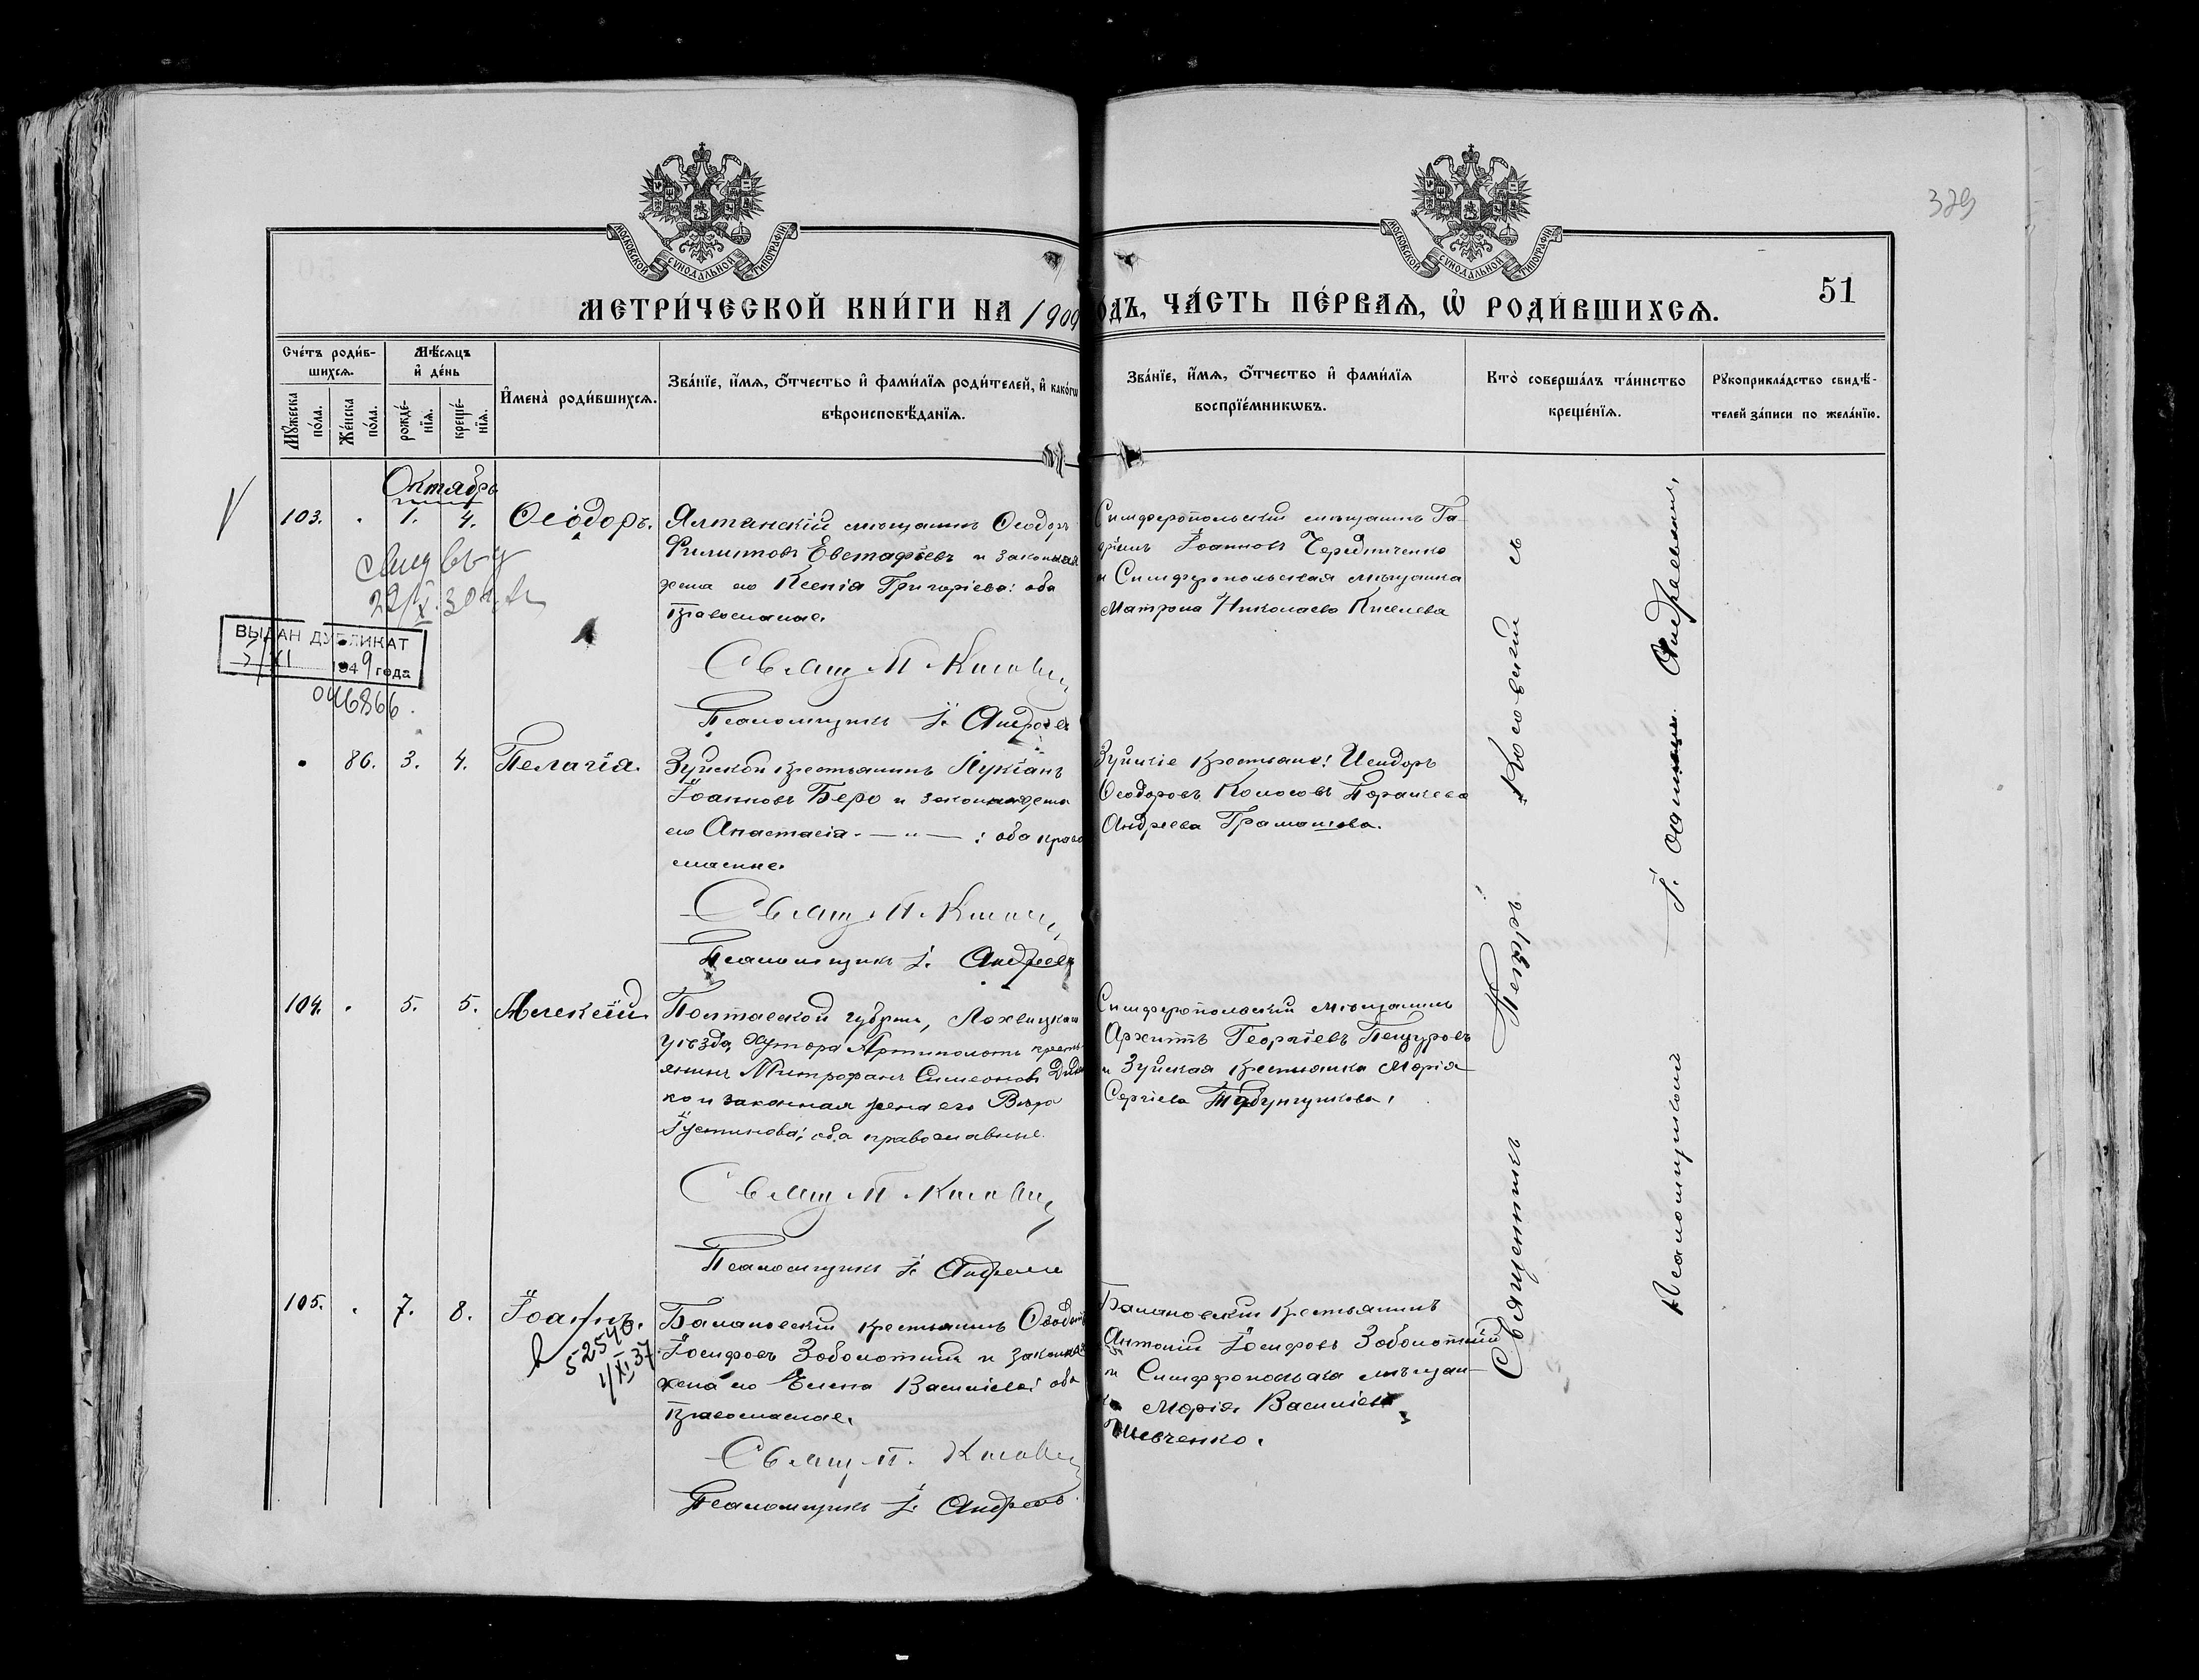 329
МОСКОВСКОЙ СѴНОДАЛЬНОЙ ТИПОГРАФІИ
МОСКОВСКОЙ СѴНОДАЛЬНОЙ ТИПОГРАФІИ
51
МЕТРИ́ЧЕСКОЙ КНИ́ГИ НА 1909
ОДЪ, ЧА́СТЬ ПЕ́РВАѦ, Ѡ҆ РОДИ́ВШИХСѦ.
Сче́тъ роди́в-
шихсѧ.
Мѣ́сѧцъ
и҆ де́нь
Мꙋ́жеска
по́ла.
Же́нска
по́ла.
рожде́-
нїѧ.
креще́-
нїѧ.
И҆мена̀ роди́вшихсѧ.
Зва́нїе, и҆́мѧ, ѻ҆́тчество и҆ фами́лїѧ роди́телей, и҆ како́гѡ
вѣроисповѣ́данїѧ.
Зва́нїе, и҆́мѧ, ѻ҆́тчество и҆ фами́лїѧ
воспрїе́мникѡвъ.
Кто̀ соверша́лъ та́инство
креще́нїѧ.
Рꙋкоприкла́дство свидѣ́-
телей за́писи по жела́нїю.
Октябрь
103. 1. 4. Ѳеодоръ.
Ялтинскій мѣщанинъ Ѳеодоръ
Филиповъ Евстафіевъ и законная
жена его Ксенія Григоріева: оба
православные.
Свящ П. Косовск
Псаломщикъ І. Андреев
Симферопольскій мѣщанинъ Га-
вріилъ Іоанновъ Чередниченко
и Симферопольская мѣщанка
Матрона Николаева Киселева
22/XI.30
ВЫДАН ДУБЛИКАТ
XI 1949 года
046866.
86. 3. 4. Пелагія.
Зуйской крестьянинъ Лукіанъ
Іоанновъ Беро и законная жена
его Анастасія — " — : оба право
славные.
Свящ. П. Косовск
Псаломщикъ І. Андреевъ
Зуйскіе крестьяне: Исидоръ
Ѳеодоровъ Колосовъ
Андреева
104. 5. 5. Алексѣй
Полтавской губерніи, Лохвицкаго
уѣзда, хутора крестъ-
янинъ Митрофанъ Симеоновъ
ко и законная жена его Вѣра
Іустинова: оба православные.
Свящ П. Косовск
Псаломщикъ І. Андреев
Симферопольскій мѣщанинъ
Архиппъ Георгіевъ Пещуровъ
и Зуйская крестьянка Марія
Сергіева
105. 7. 8. Іоаннъ.
52540
1/XI,37
Балановскій крестьянинъ
Іосифовъ Заболотный и законная
жена его Елена Василіева: оба
православные.
Свящ. П. Косовск
Псаломщикъ І. Андреевъ
Балановскій крестьянинъ
Антоній Іосифовъ Заболотный
и Симферопольская мѣщан-
ка Марія Василіева
Шевченко.
Священникъ Петръ Косовскій съ
Псаломщикомъ І. Андреевымъ,